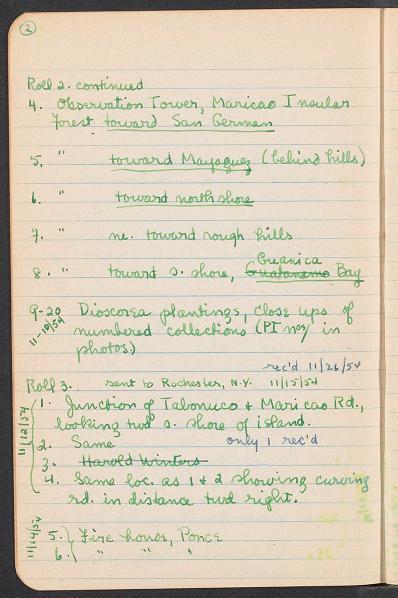 2
Roll 2. continued
4. Observation Tower, Maricao Insular
Forest toward San German
5. " toward Mayaguez (behind hills)
6. " toward north shore
7. " ne. toward rough hills
Guanica
8. " toward s. shore, Guatanamo Bay
9-20 Dioscorea plantings, close ups of
11-10/54 numbered collections (PI nos/ in
photos)
rec'd 11/26/54
Roll 3. sent to Rochester, N.Y. 11/15/54
11/12/54
1. Junction of Tabonuco + Maricao Rd.,
looking twd s. shore of island.
2. Same only 1 rec'd
3. Harold Winters
4. Same loc. as 1 + 2 showing curving
rd. in distance twd right.
11/14/54
5. Fire house, Ponce
6. " " "